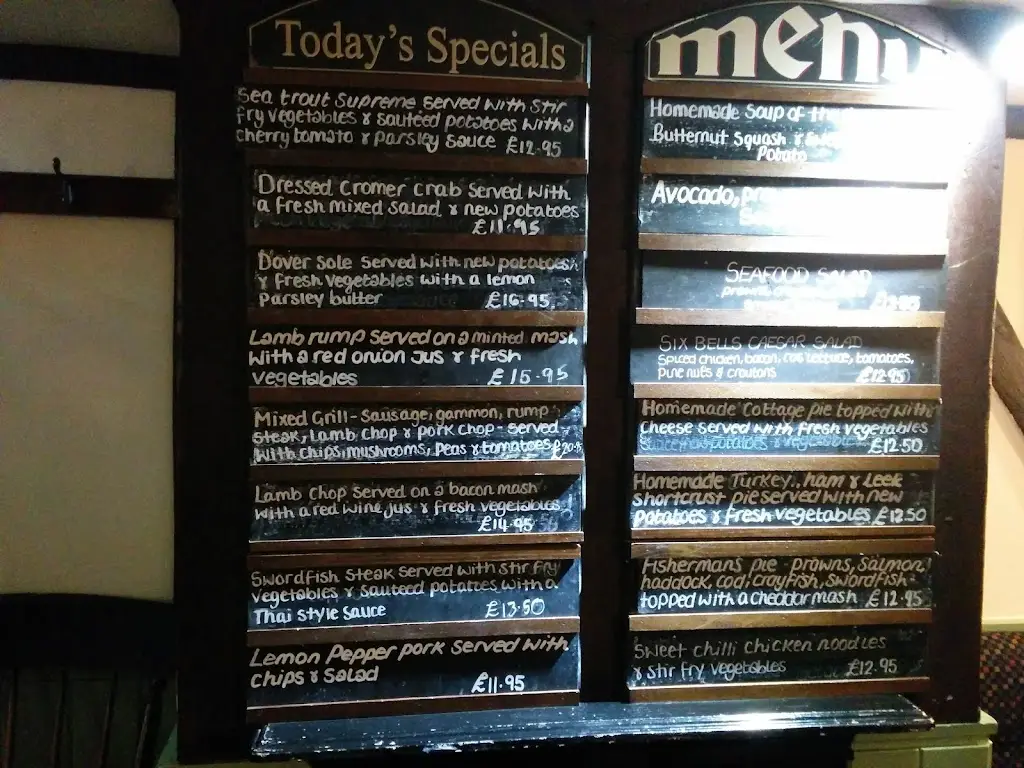 Today's Specials
Sea trout Supreme served with stir
fry vegetables & sauteed potatoes with a
cherry tomato & parsley sauce £12.95
Dressed Cromer Crab served with
a fresh mixed salad & new potatoes
£11.95
Dover Sole served with new potatoes
& fresh vegetables with a lemon
parsley butter £16.95
Lamb rump served on a minted mash
with a red onion jus & fresh
vegetables £15.95
Mixed Grill - sausage, gammon, rump
steak, lamb chop & pork chop - served
with chips, mushrooms, peas & tomatoes
Lamb chop served on a bacon mash
with a red wine jus & fresh vegetables
£14.95
Swordfish steak served with stir fry
vegetables & sauteed potatoes with a
Thai style sauce £13.50
Lemon Pepper pork served with
chips & salad
£11.95
menu
Homemade soup of the
Butternut Squash &
Potato
Avocado,
SEAFOOD SALAD
SIX BELLS CAESAR SALAD
Spiced chicken, bacon, cos lettuce, tomatoes,
pine nuts & croutons £12.95
Homemade Cottage pie topped with
cheese served with fresh vegetables
£12.50
Homemade Turkey, ham & leek
shortcrust pie served with new
potatoes & fresh vegetables £12.50
Fishermans pie - prawns, salmon,
haddock, cod, crayfish, swordfish -
topped with a cheddar mash £12.95
Sweet chilli chicken noodles
& stir fry vegetables £12.95